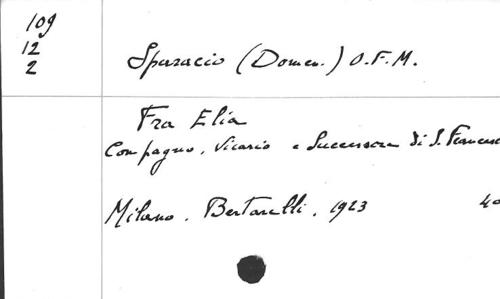 109
12
2
Sparacio (Domen.) O.F.M.
Fra Elia
Compagno, Vicario e Successore di S. Francesc
Milano. Bertarelli. 1923 40